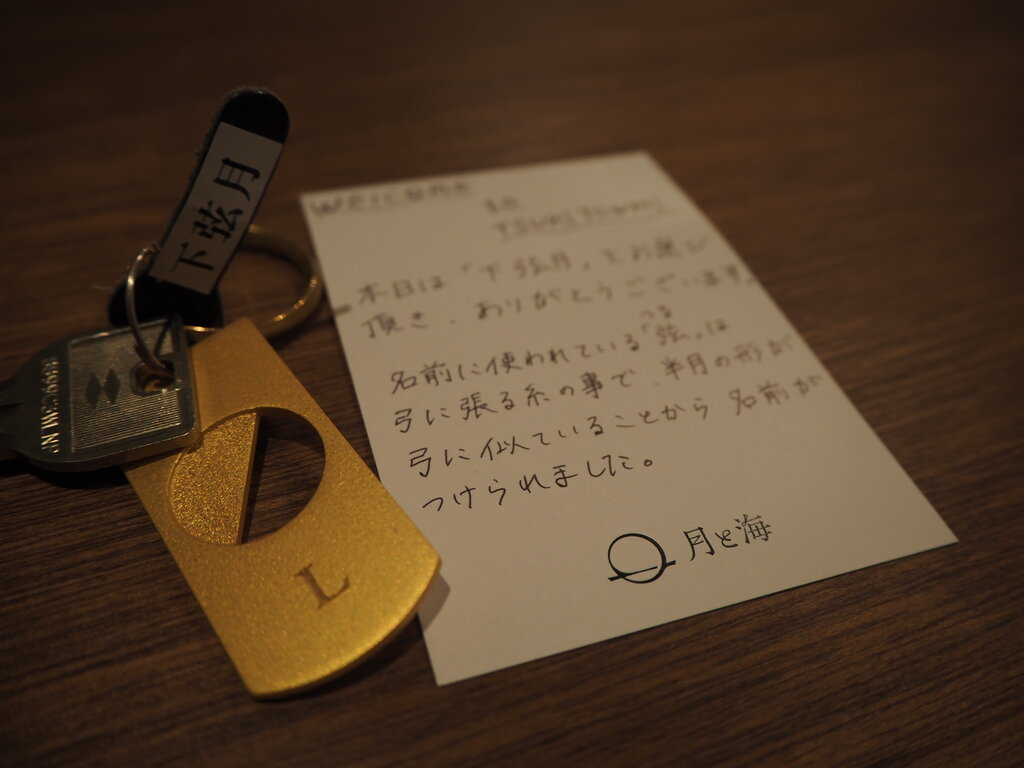 下弦月
WELCOME
to
TSUKITOUMI
本日は「下弦月」をお選び
頂き、ありがとうございます。
つる
名前に使われている「弦」は
弓に張る糸の事で、半月の形が
弓に似ていることから 名前が
つけられました。
月と海
L